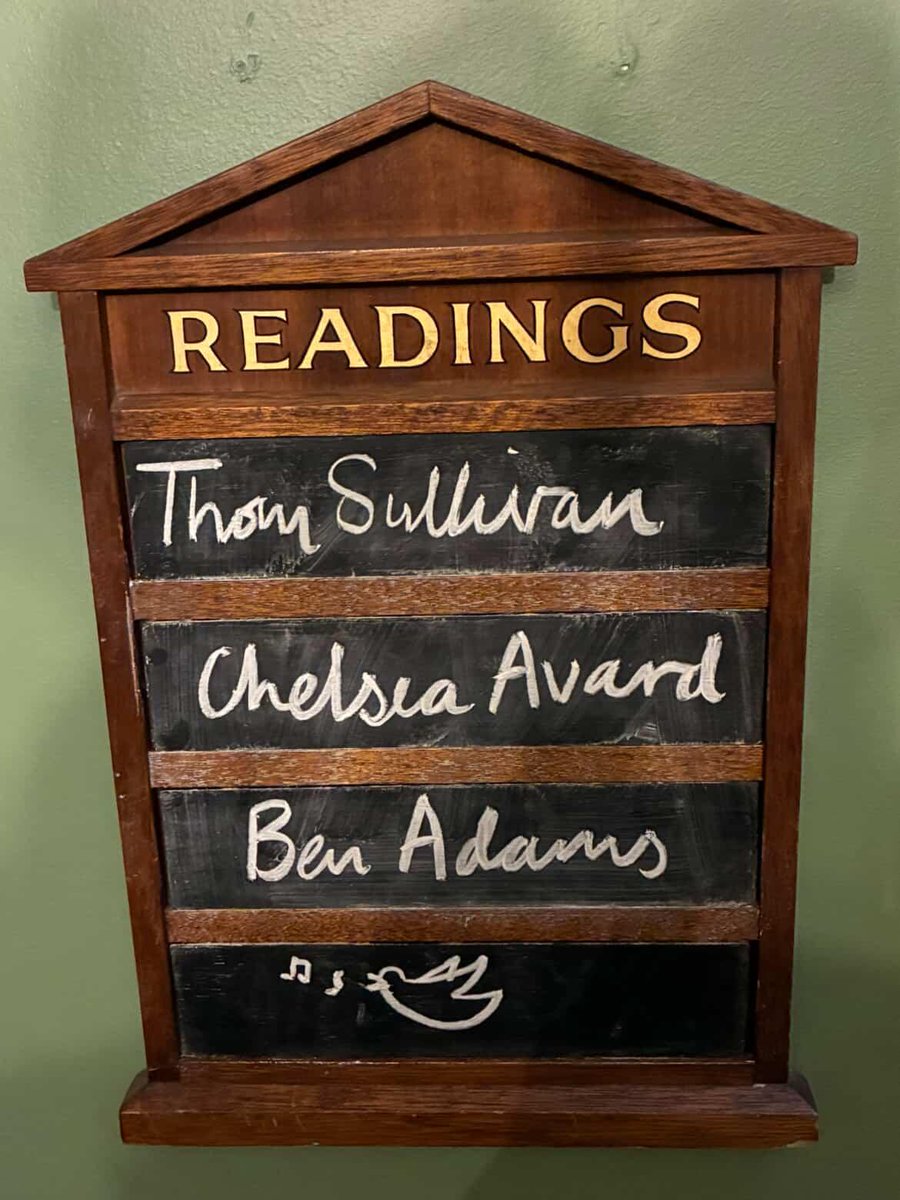 READINGS
Thom Sullivan
Chelsea Avard
Ben Adams